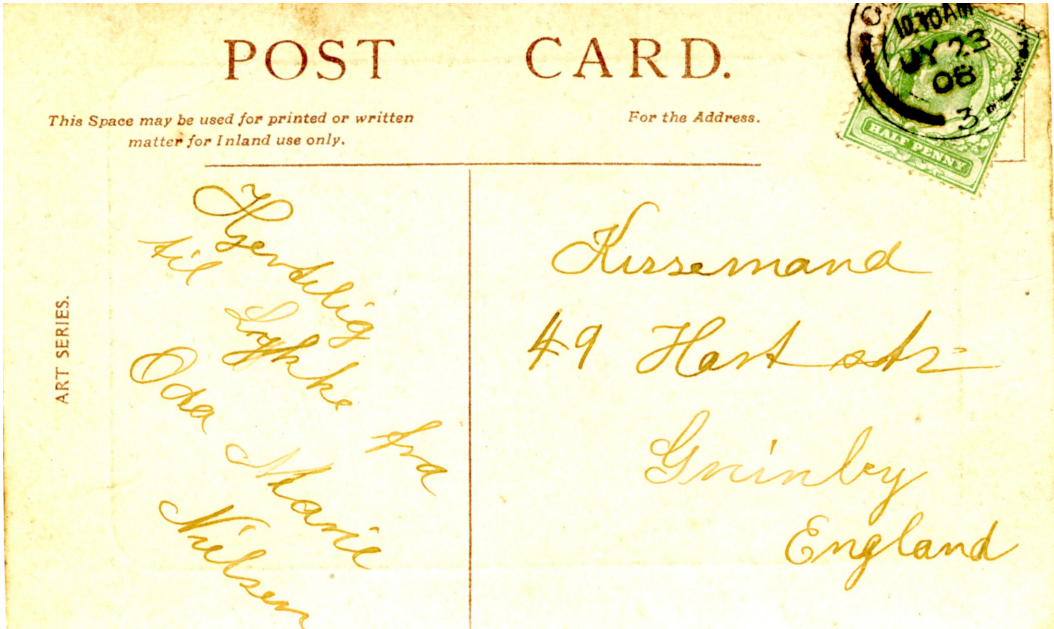 POST CARD.
This Space may be used for printed or written
matter for Inland use only.
For the Address.
ART SERIES.
10.10AM
JY 23
08
3
HALF PENNY
Hjerdelig
til Lykke fra
Oda Marie
Nielsen
Kissemand
49 Hart str
Grinby
England